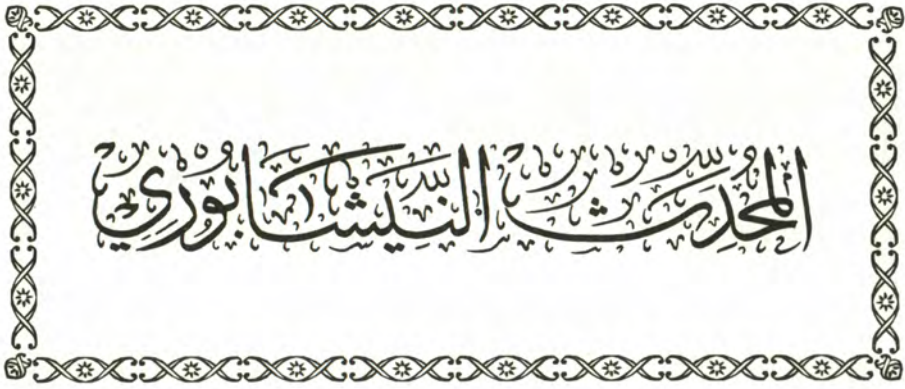 المحدث النيشابوري